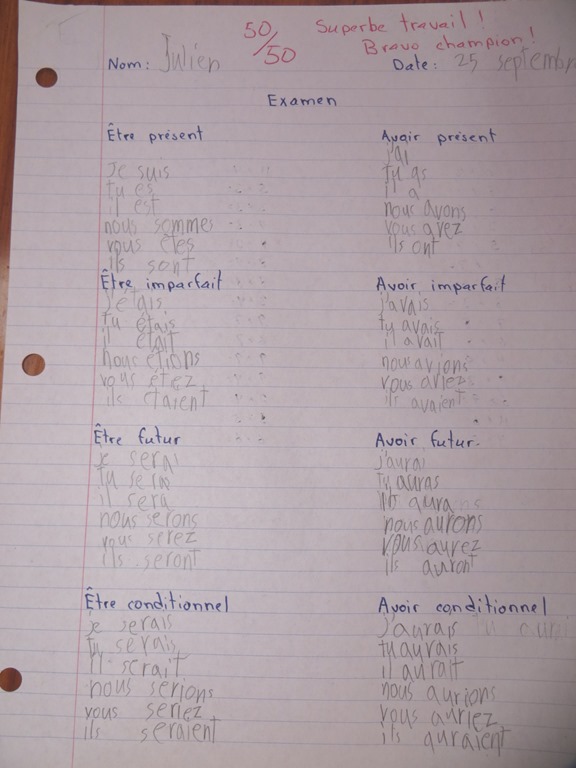 50/50
Superbe travail !
Bravo champion !
Nom: Julien
Date: 25 septembre
Examen
Être présent
Je suis
tu es
il est
nous sommes
vous êtes
ils sont
Avoir présent
j'ai
tu as
il a
nous avons
vous avez
ils ont
Être imparfait
j'étais
tu étais
il était
nous étions
vous étez
ils étaient
Avoir imparfait
j'avais
tu avais
il avait
nous avions
vous aviez
ils avaient
Être futur
je serai
tu seras
il sera
nous serons
vous serez
ils seront
Avoir futur
j'aurai
tu auras
aura
nous aurons
vous aurez
ils auront
Être conditionnel
je serais
tu serais
il serait
nous serions
vous seriez
ils seraient
Avoir conditionnel
j'aurais
tu aurais
il aurait
nous aurions
vous auriez
ils auraient